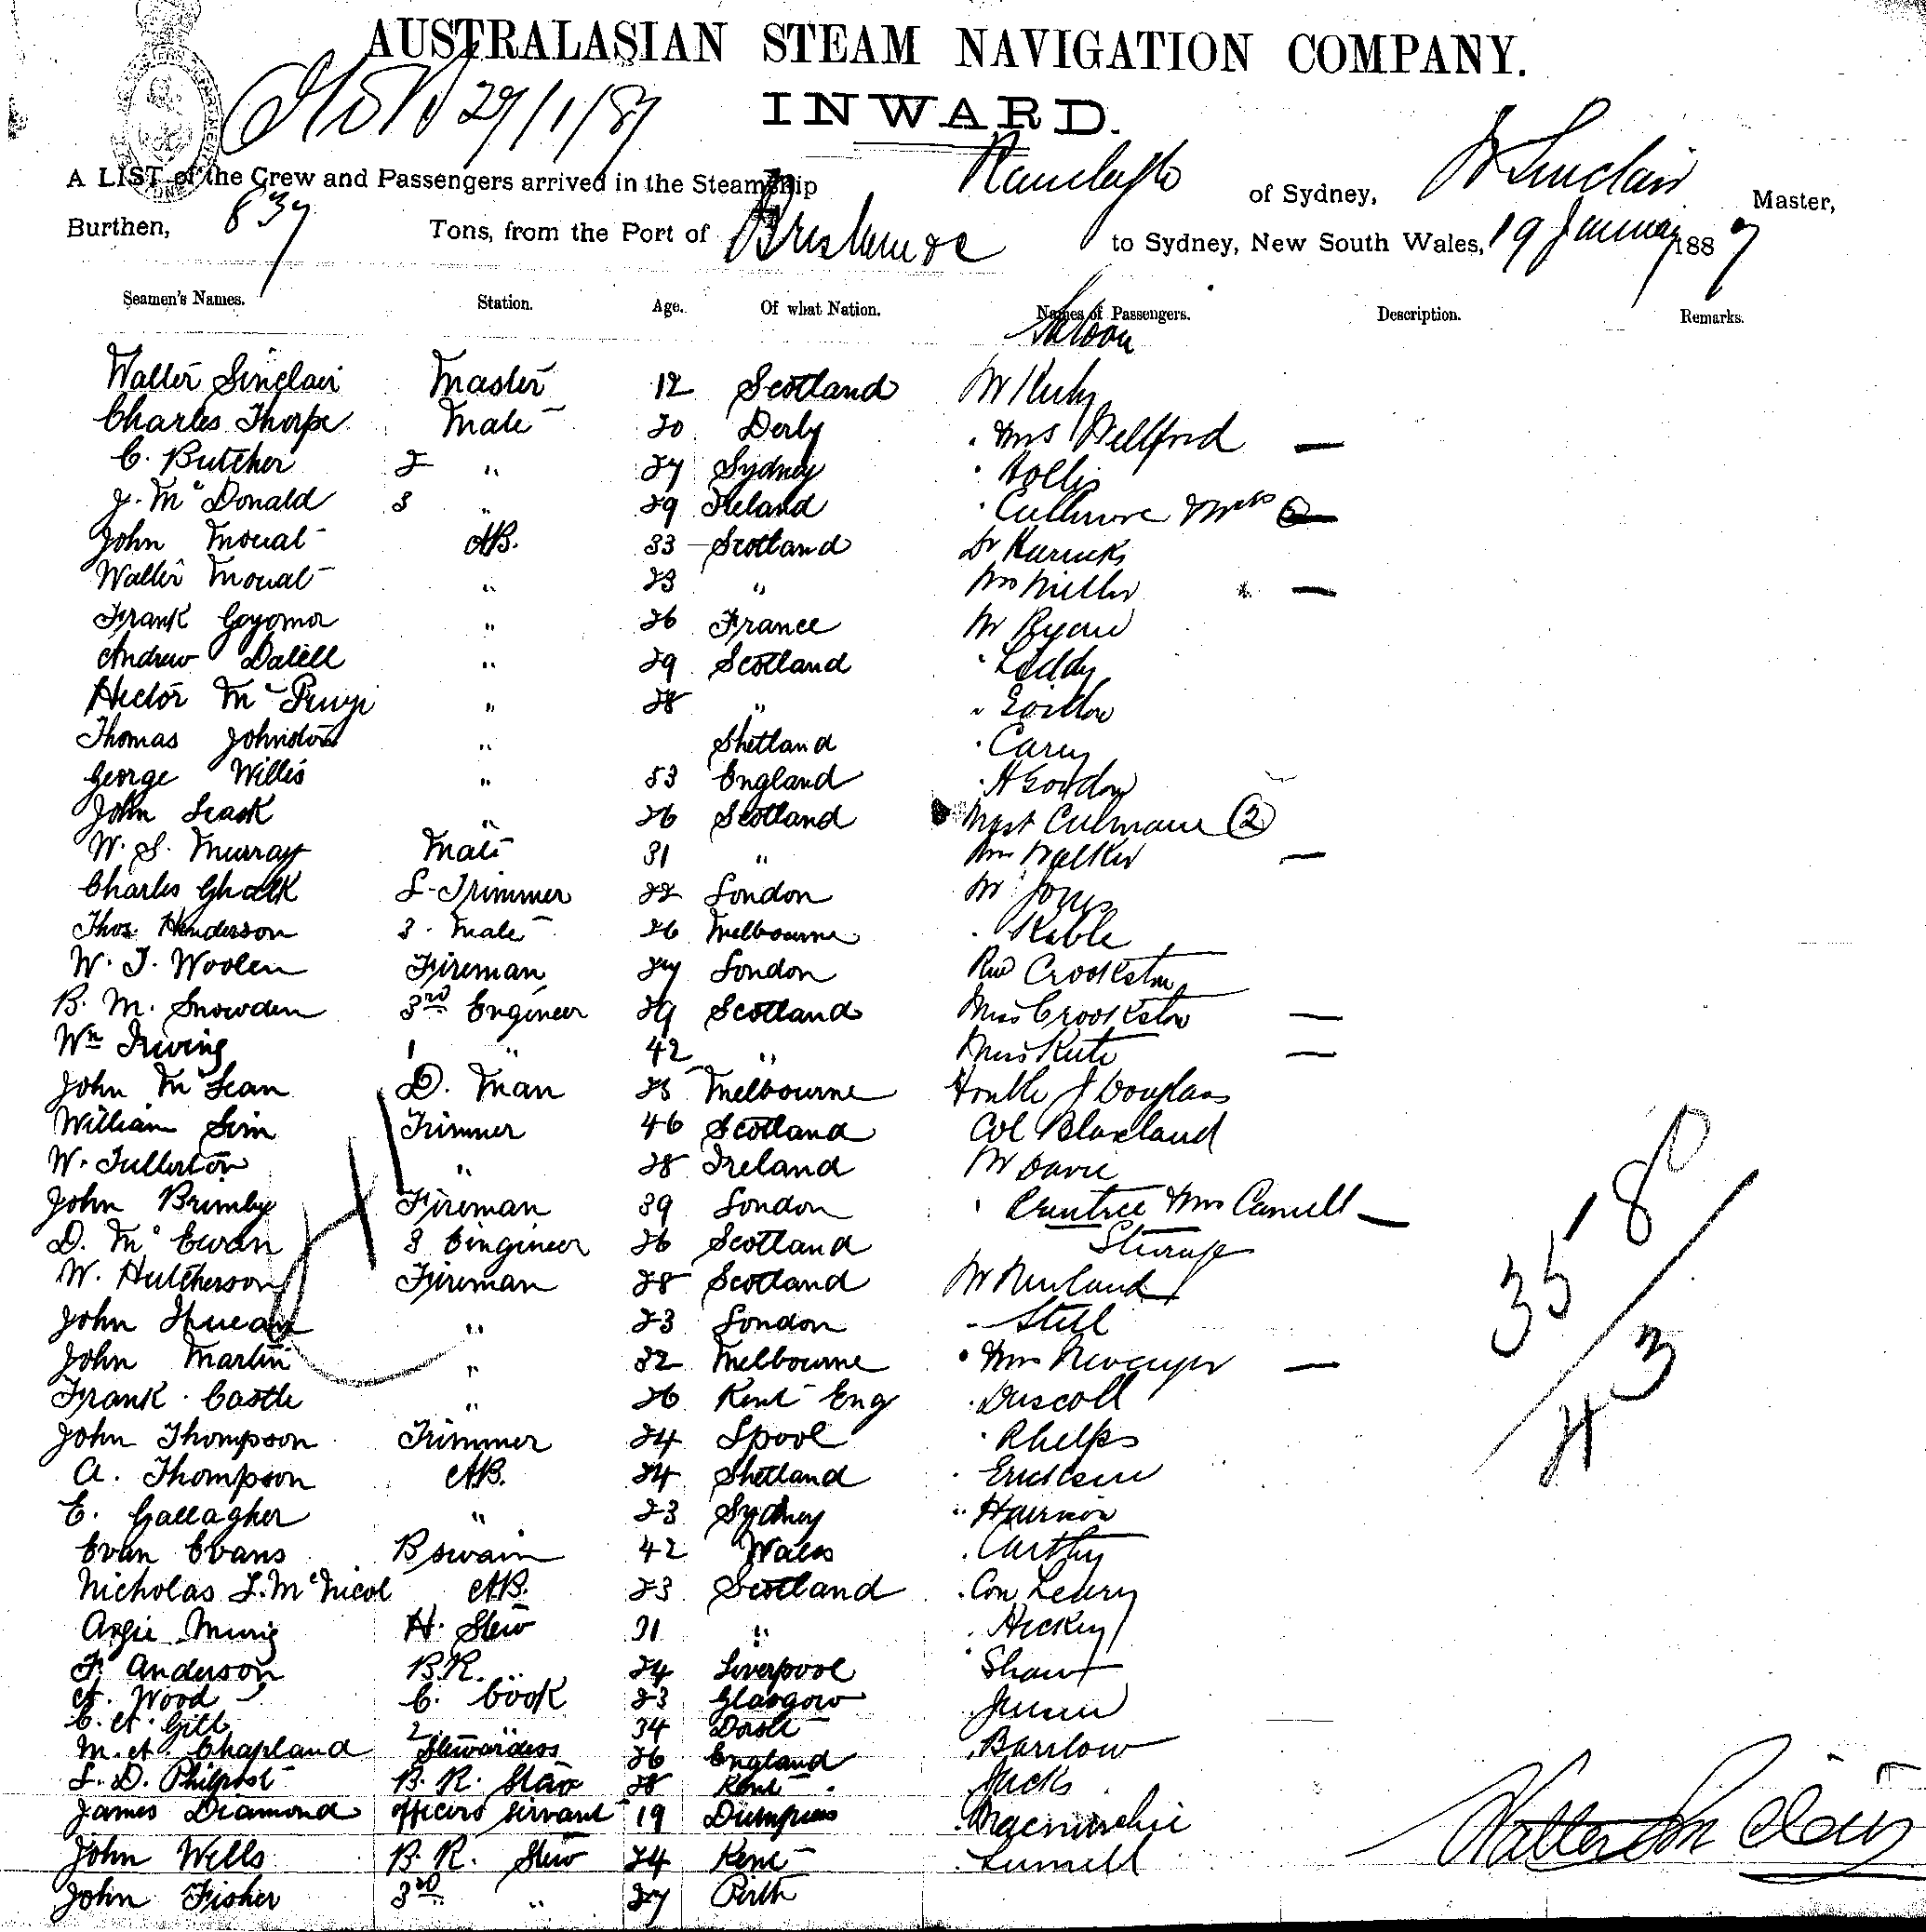 AUSTRALASIAN STEAM NAVIGATION COMPANY.
29/1/87
INWARD.
A LIST of the Crew and Passengers arrived in the Steamship Ranelagh of Sydney, W Sinclair Master,
Burthen, 837 Tons, from the Port of Brisbane to Sydney, New South Wales, 19 January 1887
Seamen's Names. Station. Age. Of what Nation. Names of Passengers. Description. Remarks.
Saloon
Walter Sinclair Master 42 Scotland Mr
Charles Thorpe Mate 30 Derby " Mrs Wellford —
C. Butcher 2 " 27 Sydney " Hollis
J. McDonald 3 " 29 Ireland "
John Mouat AB. 33 Scotland Dr
Walter Mouat " 23 " Mrs Miller —
Frank " 26 France Mr Ryan
Andrew Dalell " 29 Scotland " Leddy
Hector Mc " 28 " "
Thomas Johnston " Shetland " Carey
George Willis " 53 England " A Gordon
John Leask " 26 Scotland Mast (2)
W. S. Murray Mate 31 " Mrs Walker —
Charles Chalk L-Trimmer 22 London Mr Jones
Thos. Henderson 3. Mate 26 Melbourne " Kable
W. J. Woolen Fireman 27 London Rev Crookston
B. M. Snowden 3rd Engineer 29 Scotland Miss Crookston —
Wm Irving 1 " 42 " Miss —
John McLean D. Man 25 Melbourne Honble J Douglas
William Sim Trimmer 46 Scotland Col Blaxland
W. Fullerton " 28 Ireland Mr Davie
John Brimby Fireman 39 London " Mrs —
D. McEwan 3 Eingineer 26 Scotland Steerage
W. Hutcherson Fireman 28 Scotland Mr Newland
John " 23 London " Still
John Martin " 32 Melbourne " Mrs —
Frank Castle " 26 Kent Eng " Driscoll
John Thompson Trimmer 24 Lpool " Phelps
A. Thompson AB. 24 Shetland " Ericksen
E. Gallagher " 23 Sydney " Harrison
Evan Evans Bswain 42 Wales " Carthy
Nicholas L. McNicol AB. 23 Scotland " Con Leary
H. Stew 31 " " Hickey
F. Anderson B.R. " 24 Liverpool " Shaw
A. Wood C. Cook 23 Glasgow
C. A. Gill 2 " 34 "
M. A. Chapland Stewardess 26 England " Barlow
L. D. Philpost B. R. Stew 28 Kent " Jacks
James Diamond officers servant 19 "
John Wells B. R. Stew 24 Kent "
John Fisher 3rd " 27 Perth
35 / 8
43
Walter Sinclair